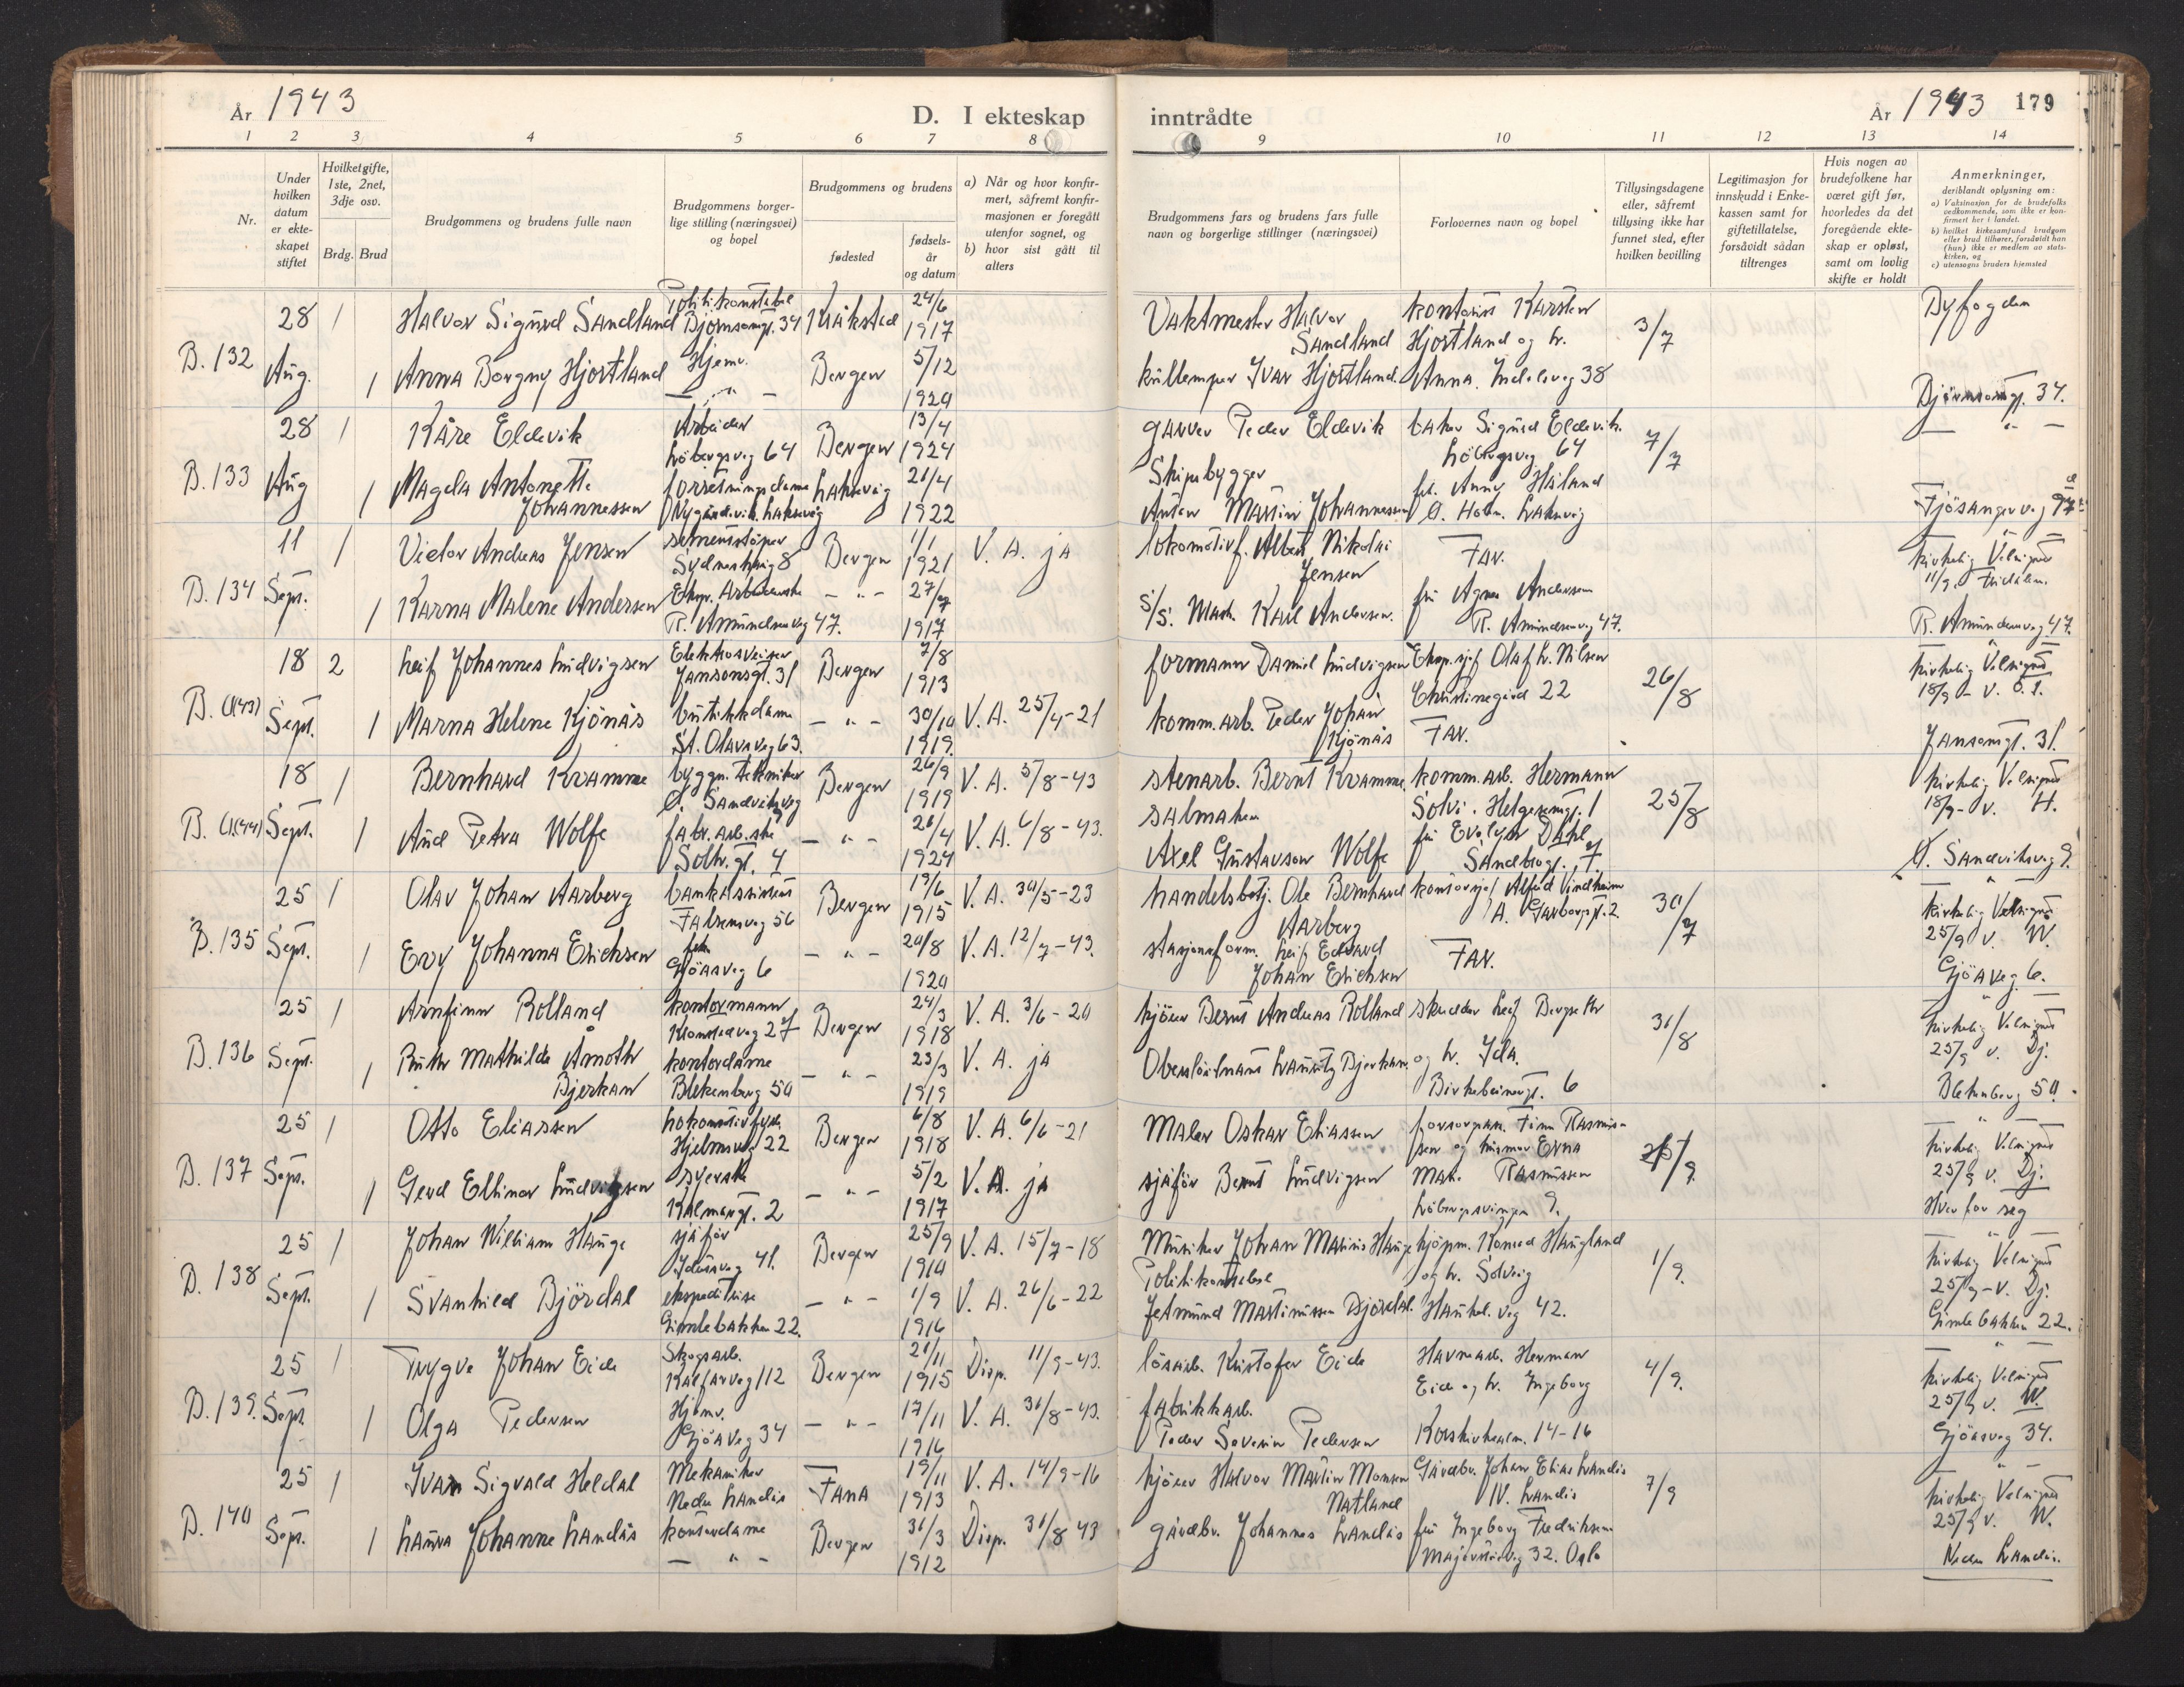 År 1943
D. I ekteskap
inntrådte
År 1943 179
1 2 3 4 5 6 7 8
9 10 11 12 13 14
Nr.
Under hvilken datum er ekteskapet stiftet
Hvilket gifte, 1ste, 2net, 3dje osv.
Brdg. Brud
Brudgommens og brudens fulle navn
Brudgommens borgerlige stilling (næringsvei) og bopel
Brudgommens og brudens
fødested
fødselsår og datum
a) Når og hvor konfirmert, såfremt konfirmasjonen er foregått utenfor sognet, og
b) hvor sist gått til alters
Brudgommens fars og brudens fars fulle navn og borgerlige stillinger (næringsvei)
Forlovernes navn og bopel
Tillysingsdagene eller, såfremt tillysing ikke har funnet sted, efter hvilken bevilling
Legitimasjon for innskudd i Enkekassen samt for giftetillatelse, forsåvidt sådan tiltrenges
Hvis nogen av brudefolkene har været gift før, hvorledes da det foregående ekteskap er opløst, samt om lovlig skifte er holdt
Anmerkninger,
deriblandt oplysning om:
a) Vaksinasjon for de brudefolks vedkommende, som ikke er konfirmert her i landet.
b) hvilket kirkesamfund brudgom eller brud tilhører, forsåvidt han (hun) ikke er medlem av statskirken, og
c) utensogns bruders hjemsted
B. 132
28 1 Halvor Sigurd Sandland Politikonstabel Bjørnsonsgt. 34 Kråkstad 24/6 1917 Vaktmester Halvor Sandland kontorist Karsten Hjortland og fr. 3/7 Byfogden
Aug. 1 Anna Borgny Hjortland Hjemv. — " — Bergen 5/12 1920 Ivar Hjortland. Anna. 38 Bjørnsonsgt. 34.
B. 133
28 1 Kåre Eldevik Arbeider Løbergsveg 64 Bergen 13/4 1924 garver Peder Eldevik baker Sigurd Eldevik. Løbergsveg 64 7/7 — " —
Aug 1 Magda Antonette Johannessen forretningsdame Laksevåg 21/4 1922 Skipsbygger Anton Martin Johannessen frk. Anny Håland Laksevåg Fjøsangerveg
B. 134
11 1 Victor Andreas Jensen sementstøper 8 Bergen 1/1 1921 V. A. ja lokomotivf. Albert Nikolai Jensen Far. kirkelig Velsignet 11/9.
Sept. 1 Karna Malene Andersen Eksp. Arbeiderske R. Amundsenveg 47. — " — 27/7 1917 S/S. Mask. Karl Andersen. fru Agnes Andersen R. Amundsenveg 47. R. Amundsensveg 47.
B. (1/43)
18 2 Leif Johannes Ludvigsen Elektrosveiser Jansonsgt. 31 Bergen 7/8 1913 formann Daniel Ludvigsen Eksp.sjef Olaf L. Nilsen Christinegård 22 26/8 kirkelig Velsignet 18/9 - V.
Sept. 1 Marna Helene Kjønås butikkdame St. Olavsveg 63. — " — 30/10 1919. V. A. 25/4-21 komm.arb. Peder Johan Kjønås Far. Jansonsgt. 31.
B. (1/44)
18 1 Bernhard Kramme byggn. tekniker Ø. Sandviksveg 9 Bergen 26/9 1919 V. A. 5/8-43 stenarb. Bernt Kramme, komm.arb. Hermann Solvi. Helgesensgt. 1 25/8 kirkelig Velsignet 18/9 - V. H.
Sept. 1 Aud Petra Wolfe fabr. arb.ske — " — 1924 V. A. 6/8-43. salmaker Axel Gustavson Wolfe fru Evelyn Dahl Ø. Sandviksveg 9.
B. 135
25 1 Olav Johan Aarberg bankassistent Falsensveg 56 Bergen 19/6 1915 V. A. 30/5-23 handelsbetj. Ole Bernhard Aarberg kontorsjef Alfred Vindheim A. Garborgsgt. 2 30/7 kirkelig Velsignet 25/9 V. W.
Sept. 1 Evy Johanna Erichsen Gjøasveg 6 — " — 20/8 1920 V. A. 12/7-43. stasjonsform. Leif Edvard Johan Erichsen Far. Gjøaveg 6.
B. 136
25 1 Arnfinn Rolland kontormann 27 Bergen 24/3 1918 V. A. 3/6-20 kjører Bernt Andreas Rolland skredder Leif Bergseth 31/8 kirkelig Velsignet 25/9 V. Bj.
Sept. 1 Ruth Mathilde Åmoth Bjerkan kontordame Blekenberg 50 — " — 23/3 1919 V. A. ja Oberstløitnant Lauritz Bjerkan. og fr. Ida. Birkebeinergt. 6 Blekenberg 50.
B. 137
25 1 Otto Eliassen Lokomotivfyrb. Hjelmsveg 22 Bergen 6/8 1918 V. A. 6/6-21 Maler Oskar Eliassen Finn Rasmussen og husmor Erna kirkelig Velsignet 25/9 V. Bj.
Sept. 1 Gerd Ellinor Ludvigsen syerske Kalmargt. 2 — " — 5/2 1917 V. A. ja sjåfør Bernt Ludvigsen Mar. Rasmussen Løbergsvingen 9. Hver for seg
B. 138
25 1 Johan William Hauge sjåfør 41. Bergen 25/9 1910 V. A. 15/7-18 Musiker Johan Marinus Hauge kjøpm. Konrad Haugland og fr. Solveig 1/9. kirkelig Velsignet 25/9 - V. Bj.
Sept. 1 Svanhild Bjørdal ekspeditrise Gimlebakken 22. — " — 1/9 1916 V. A. 26/6-22 Politikonstabel Jetmund Martinussen Bjørdal. Haukel. veg 42. Gimlebakken 22.
B. 139.
25 1 Trygve Johan Eide Skogsarb. Kalfarveg 112 Bergen 21/11 1915 Disp. 11/9-43. løsarb. Kristofer Eide Havnearb. Herman Eide og fr. Ingeborg 4/9. kirkelig Velsignet 25/9 V. W.
Sept. 1 Olga Pedersen Hjemv. Gjøaveg 34 — " — 17/11 1916 V. A. 31/8-43. fabrikkarb. Peder Severin Pedersen Korskirkealm. 14-16 Gjøasveg 34.
B. 140
25 1 Ivar Sigvald Heldal Mekaniker Nedre Landås Fana 19/11 1913 V. A. 14/9-16 kjører Halvor Martin Monsen Natland Gårdbr. Johan Elias Landås N. Landås 7/9 kirkelig Velsignet 25/9 V. W.
Sept. 1 Laura Johanne Landås kontordame — " — Bergen 31/3 1912 Disp. 31/8 43 gårdbr. Johannes Landås fru Ingeborg Fredriksen Majorstuveg 32. Oslo Nedre Landås.